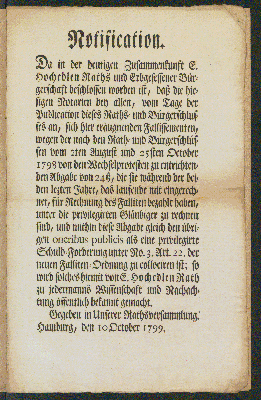 Notification.
Da in der heutigen Zusammenkunft E.
Hochedlen Raths und Erbgesessener Bür-
gerschaft beschlossen worden ist, daß die hie-
sigen Notarien bey allen, vom Tage der
Publication dieses Raths- und Bürgerschlus-
ses an, sich hier eraugnenden Fallissementen,
wegen der nach den Rath- und Bürgerschlüs-
sen vom 2ten August und 25sten October
1798 von den Wechselprotesten zu entrichten-
den Abgabe von 24ß, die sie während der bei-
den letzten Jahre, das laufende mit eingerech-
net, für Rechnung des Falliten bezahlt haben,
unter die privilegirten Gläubiger zu rechnen
sind, und mithin diese Abgabe gleich den übri-
gen oneribus publicis als eine privilegirte
Schuld-Forderung unter No. 3. Art. 22. der
neuen Falliten-Ordnung zu collociren ist: so
wird solches hiemit von E. Hochedlen Rath
zu jedermanns Wissenschaft und Nachach-
tung öffentlich bekannt gemacht.
Gegeben in Unserer Rathsversammlung.
Hamburg, den 10 October 1799.